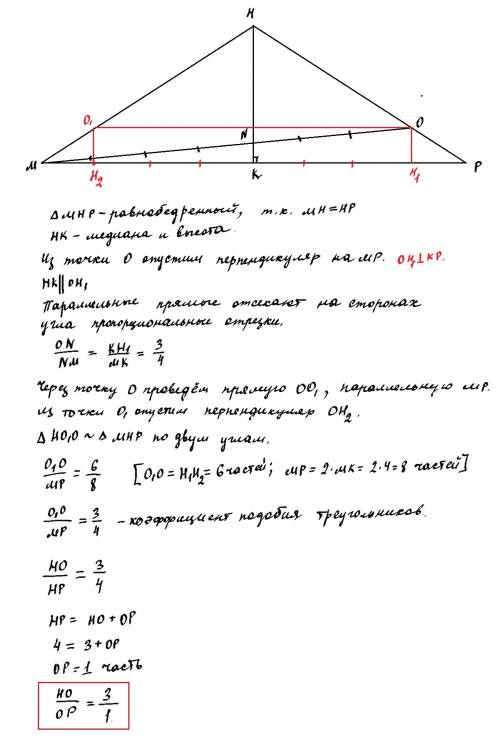 H
O₁
O
N
M
H₂
K
H₁
P
ΔMHP - равнобедренный, т.к. MH = HP
HK - медиана и высота.
Из точки O опустим перпендикуляр на MP. OH₁⊥KP.
HK || OH₁
Параллельные прямые отсекают на сторонах
угла пропорциональные отрезки.
ON/NM = KH₁/MK = 3/4
Через точку O проведём прямую OO₁, параллельную MP.
Из точки O₁ опустим перпендикуляр OH₂.
Δ HO₁O ~ Δ MHP по двум углам.
O₁O/MP = 6/8 [O₁O = H₁H₂ = 6 частей; MP = 2·MK = 2·4 = 8 частей]
O₁O/MP = 3/4 - коэффициент подобия треугольников.
HO/HP = 3/4
HP = HO + OP
4 = 3 + OP
OP = 1 часть
HO/OP = 3/1